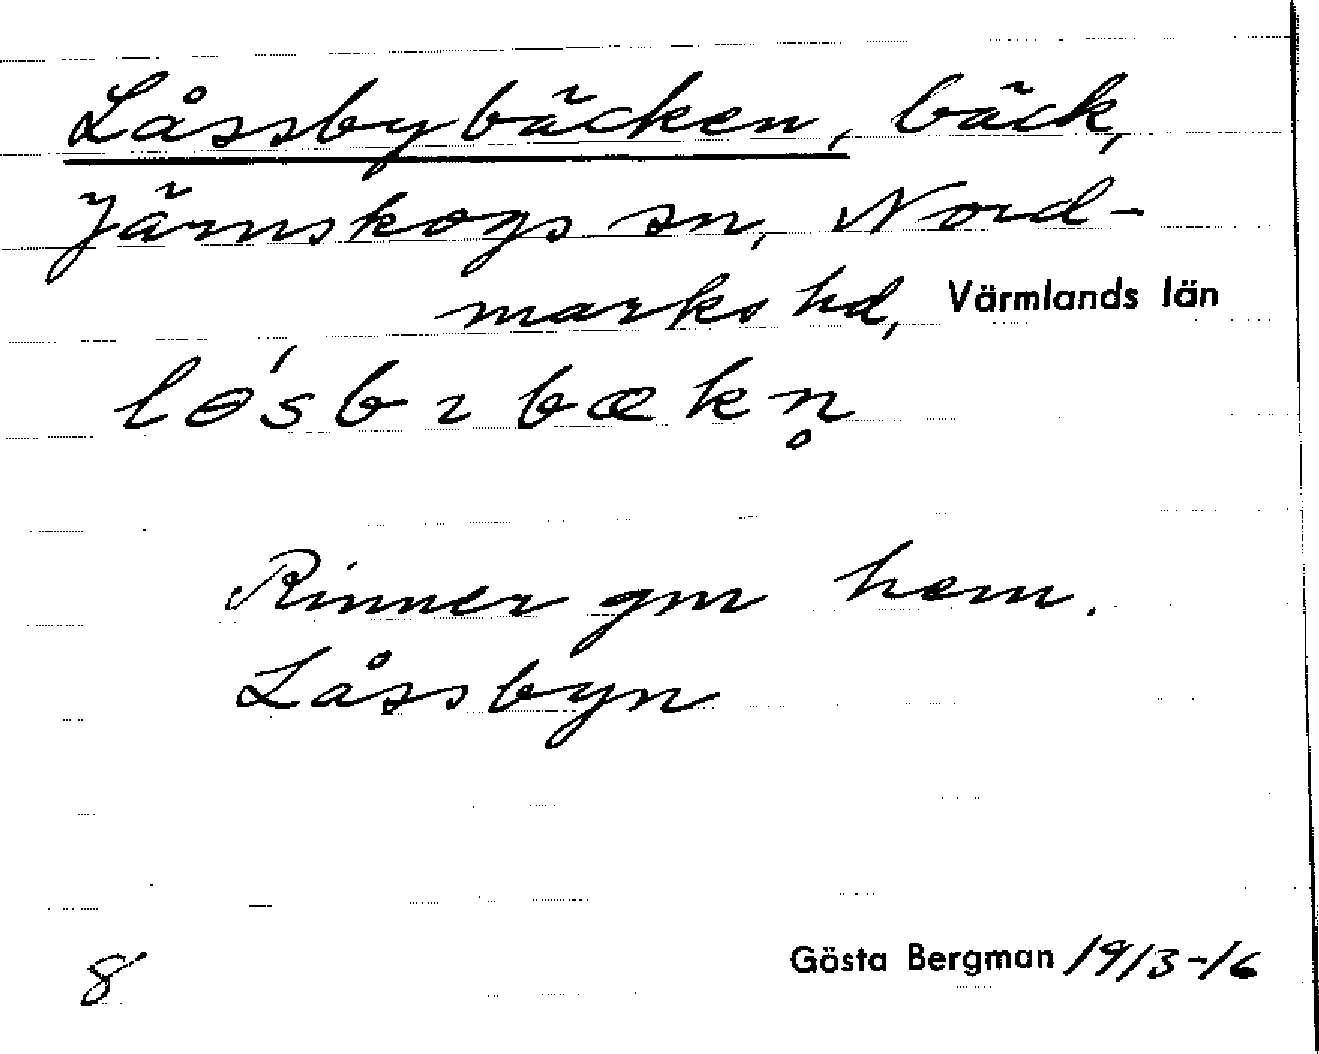 Låssbybäcken, bäck,
Järnskogs sn, Nord-
marks hd, Värmlands län
lɵ́sbɿbækn̥
Rinner gm hem.
Låssbyn
8
Gösta Bergman 1913-16